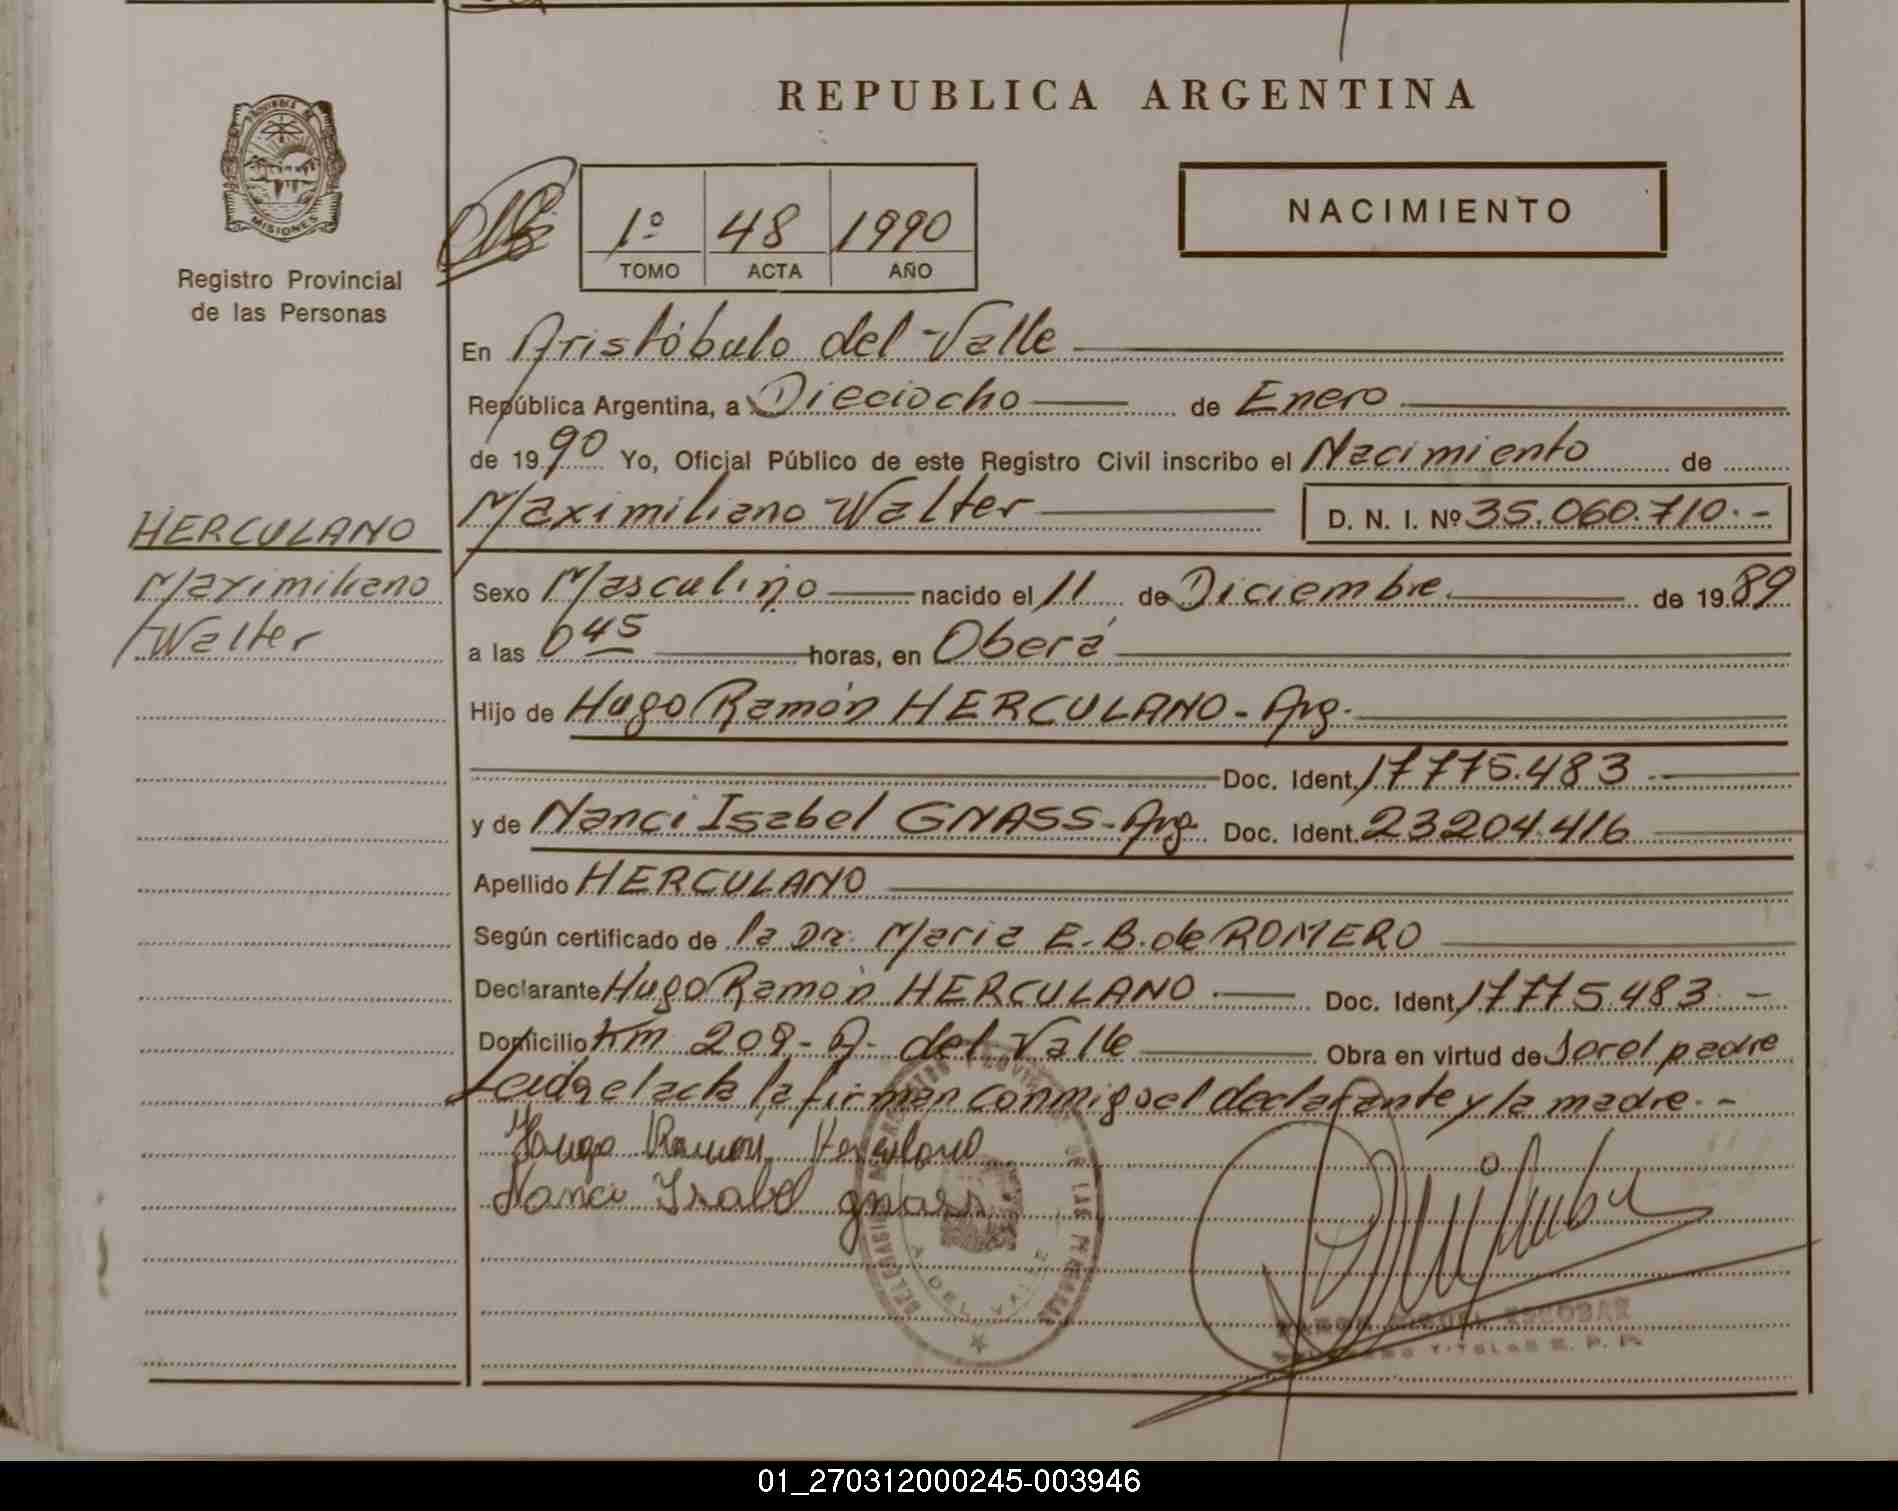 REPUBLICA ARGENTINA
PROVINCIA
MISIONES
Registro Provincial
de las Personas
1º 48 1990
TOMO ACTA AÑO
NACIMIENTO
En Aristóbulo del Valle
República Argentina, a Dieciocho de Enero
de 1990 Yo, Oficial Público de este Registro Civil inscribo el Nacimiento de
Maximiliano Walter D. N. I. Nº 35.060.710.-
HERCULANO
Maximiliano
Walter
Sexo Masculino nacido el 11 de Diciembre de 1989
a las 0 45 horas, en Oberá
Hijo de Hugo Ramón HERCULANO - Arg.
Doc. Ident. 17775.483
y de Nanci Isabel GNASS - Arg. Doc. Ident. 23204.416
Apellido HERCULANO
Según certificado de la Dra. Maria E. B. de ROMERO
Declarante Hugo Ramón HERCULANO Doc. Ident. 17775.483. -
Domicilio Km 209 - A. del Valle Obra en virtud de Ser el padre
Leida el acta la firman conmigo el declarante y la madre. -
Hugo Ramon Herculano
Nanci Isabel gnass
DE LAS PERSONAS
A. DEL VALLE
RAMON MIGUEL ESCOBAR
01_270312000245-003946